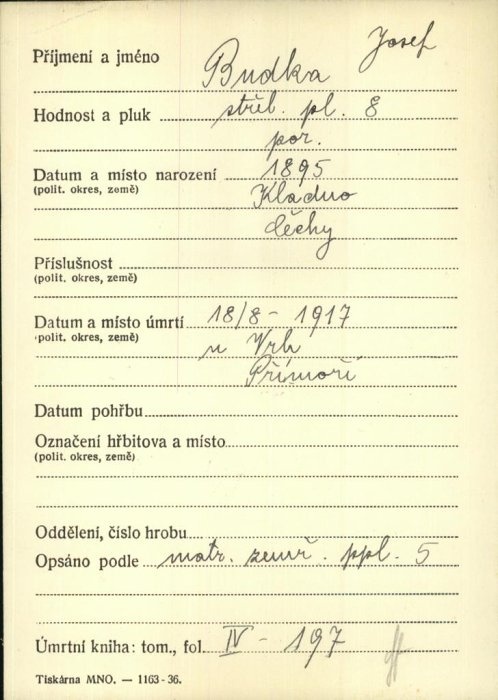 Josef
Příjmení a jméno Budka
Hodnost a pluk střel. pl. 8
por.
Datum a místo narození 1895
(polit. okres, země) Kladno
Čechy
Příslušnost
(polit. okres, země)
Datum a místo úmrtí 18/8 - 1917
(polit. okres, země) u Vrh
Přímoří
Datum pohřbu
Označení hřbitova a místo
(polit. okres, země)
Oddělení, číslo hrobu
Opsáno podle matr. zemř. ppl. 5
Úmrtní kniha: tom., fol. IV - 197
Tiskárna MNO. — 1163-36.